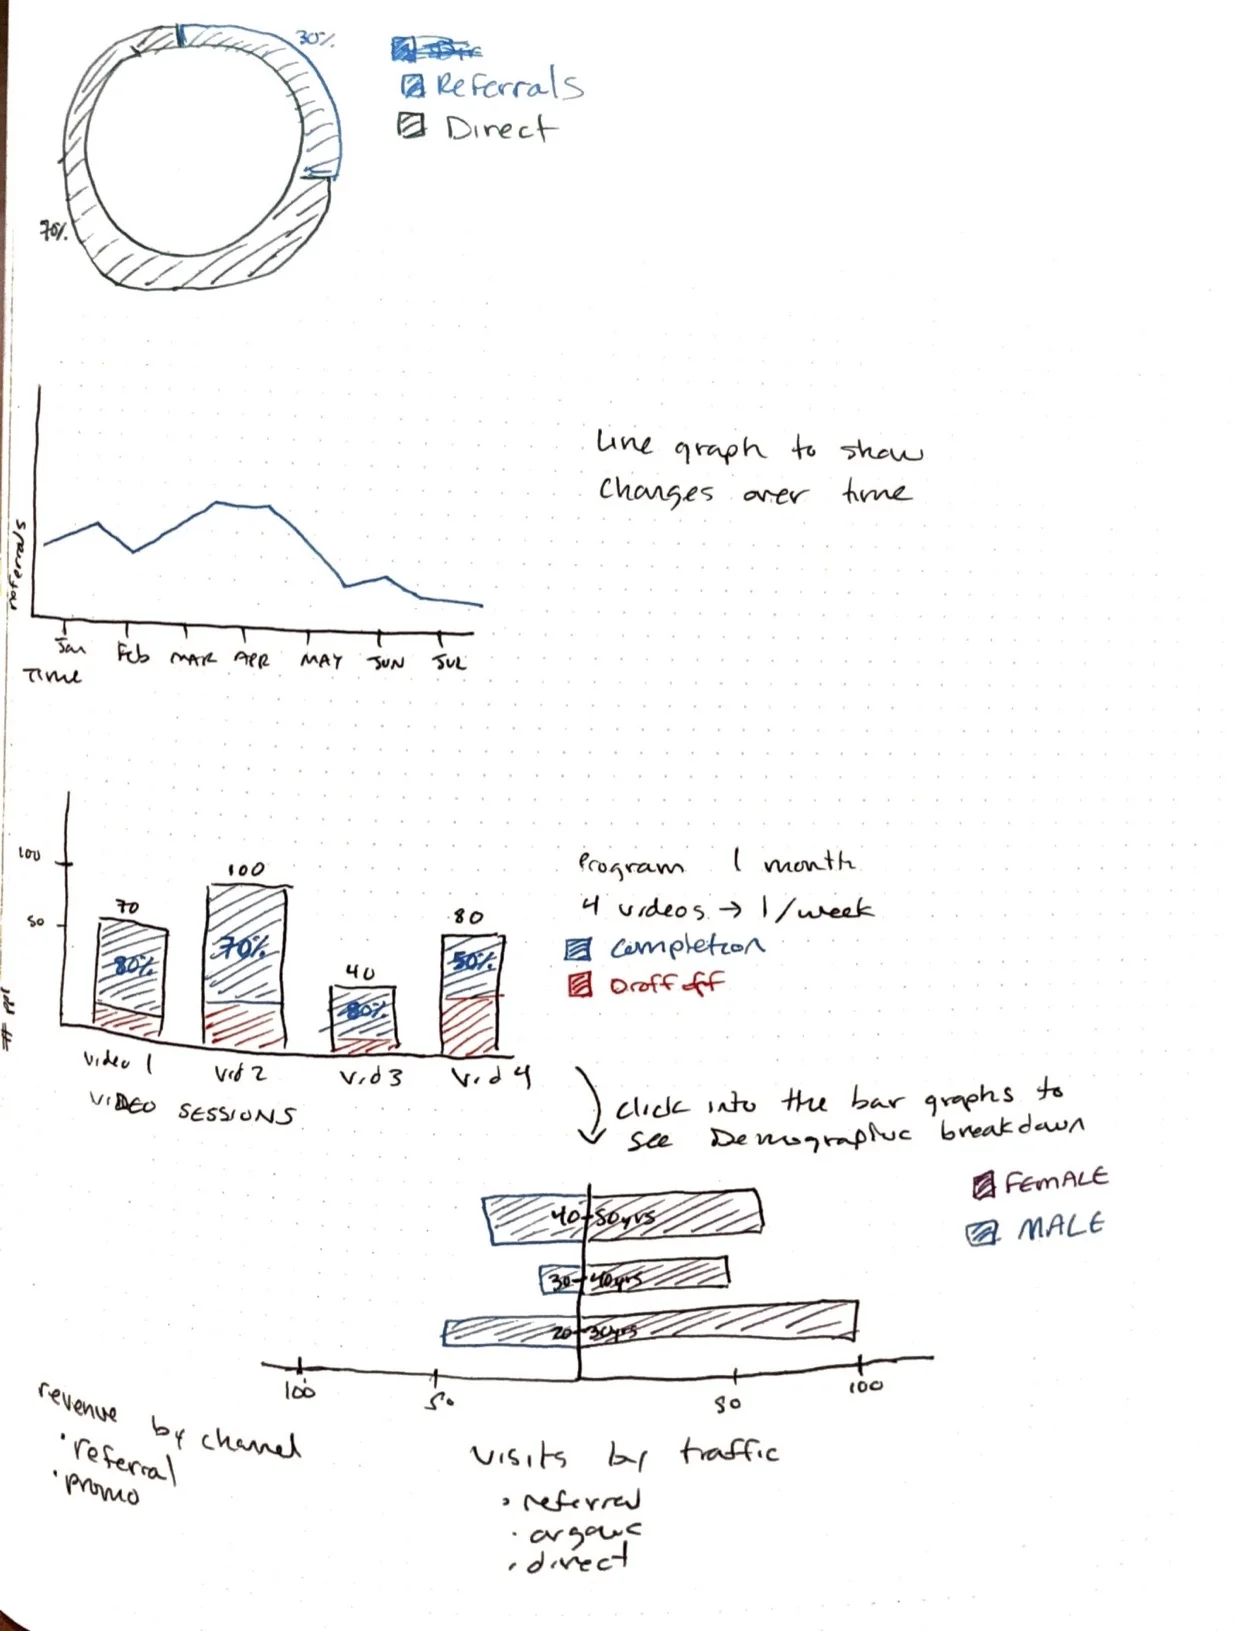 30%
Referrals
Direct
70%
Line graph to show
changes over time
Jan Feb MAR APR MAY JUN JUL
Time
100
50
70
100
40
80
80%
70%
80%
50%
Program 1 month
4 videos → 1/week
completion
Droff off
Video 1 Vid 2 Vid 3 Vid 4
VIDEO SESSIONS
click into the bar graphs to
see Demographic breakdown
FEMALE
MALE
40-50yrs
30-40yrs
20-30yrs
100 50 50 100
revenue by channel
· referral
· promo
visits by traffic
· referral
· organic
· direct